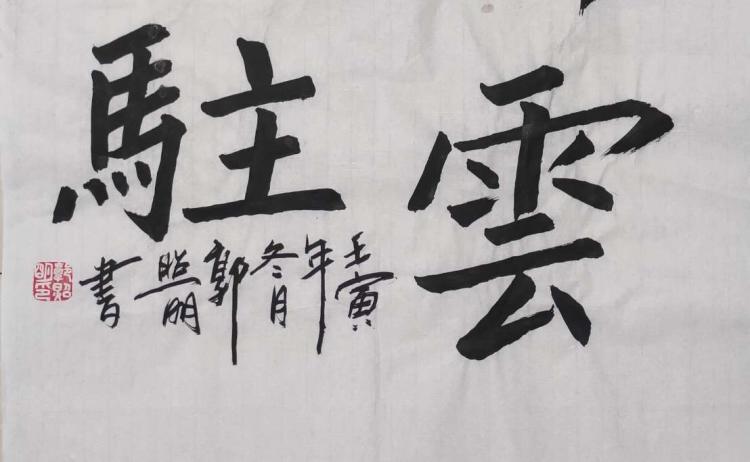 雲
駐
壬寅
年
冬月
郭
照明
書
郭照明印